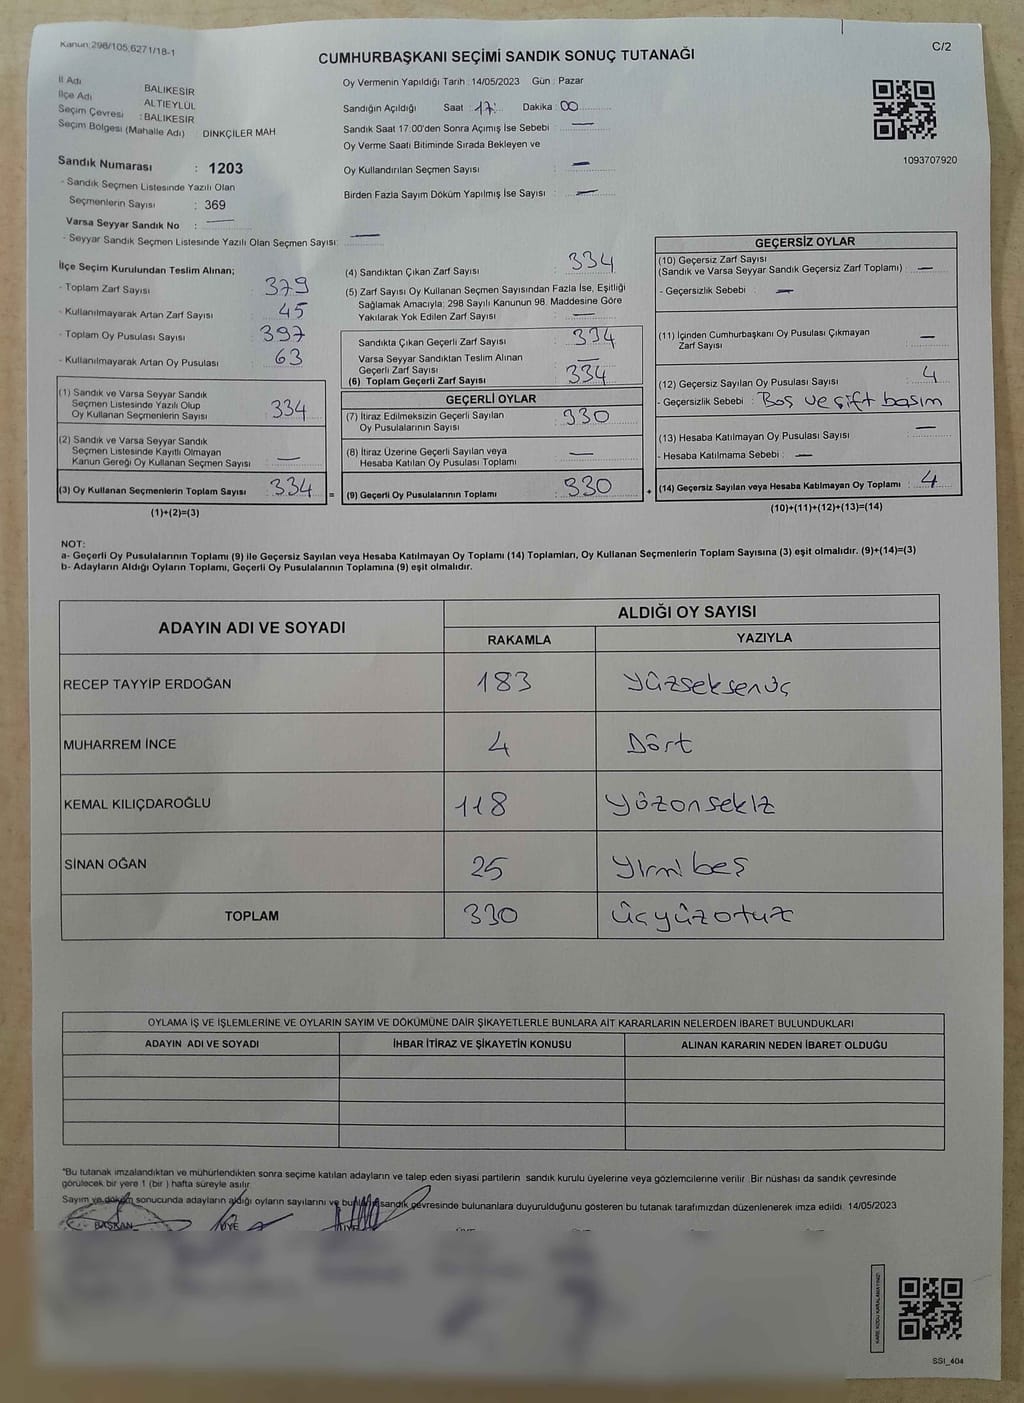 Kanun:298/105,6271/18-1
C/2
CUMHURBAŞKANI SEÇİMİ SANDIK SONUÇ TUTANAĞI
İl Adı BALIKESİR
İlçe Adı ALTIEYLÜL
Seçim Çevresi : BALIKESİR
Seçim Bölgesi (Mahalle Adı) DİNKÇİLER MAH
Sandık Numarası : 1203
- Sandık Seçmen Listesinde Yazılı Olan
Seçmenlerin Sayısı : 369
Varsa Seyyar Sandık No : —
- Seyyar Sandık Seçmen Listesinde Yazılı Olan Seçmen Sayısı: —
Oy Vermenin Yapıldığı Tarih : 14/05/2023 Gün : Pazar
Sandığın Açıldığı Saat : 17: Dakika : 00
Sandık Saat 17:00'den Sonra Açımış İse Sebebi : —
Oy Verme Saati Bitiminde Sırada Bekleyen ve
Oy Kullandırılan Seçmen Sayısı : —
Birden Fazla Sayım Döküm Yapılmış İse Sayısı : —
1093707920
İlçe Seçim Kurulundan Teslim Alınan;
- Toplam Zarf Sayısı : 379
- Kullanılmayarak Artan Zarf Sayısı : 45
- Toplam Oy Pusulası Sayısı : 397
- Kullanılmayarak Artan Oy Pusulası : 63
(1) Sandık ve Varsa Seyyar Sandık
Seçmen Listesinde Yazılı Olup
Oy Kullanan Seçmenlerin Sayısı : 334
(2) Sandık ve Varsa Seyyar Sandık
Seçmen Listesinde Kayıtlı Olmayan
Kanun Gereği Oy Kullanan Seçmen Sayısı : —
(3) Oy Kullanan Seçmenlerin Toplam Sayısı : 334
(1)+(2)=(3)
=
(4) Sandıktan Çıkan Zarf Sayısı : 334
(5) Zarf Sayısı Oy Kullanan Seçmen Sayısından Fazla İse, Eşitliği
Sağlamak Amacıyla; 298 Sayılı Kanunun 98. Maddesine Göre
Yakılarak Yok Edilen Zarf Sayısı : —
Sandıkta Çıkan Geçerli Zarf Sayısı : 334
Varsa Seyyar Sandıktan Teslim Alınan
Geçerli Zarf Sayısı : —
(6) Toplam Geçerli Zarf Sayısı : 334
GEÇERLİ OYLAR
(7) İtiraz Edilmeksizin Geçerli Sayılan
Oy Pusulalarının Sayısı : 330
(8) İtiraz Üzerine Geçerli Sayılan veya
Hesaba Katılan Oy Pusulası Toplamı : —
(9) Geçerli Oy Pusulalarının Toplamı : 330
+
GEÇERSİZ OYLAR
(10) Geçersiz Zarf Sayısı
(Sandık ve Varsa Seyyar Sandık Geçersiz Zarf Toplamı) : —
- Geçersizlik Sebebi : —
(11) İçinden Cumhurbaşkanı Oy Pusulası Çıkmayan
Zarf Sayısı : —
(12) Geçersiz Sayılan Oy Pusulası Sayısı : 4
- Geçersizlik Sebebi : Boş ve çift basım
(13) Hesaba Katılmayan Oy Pusulası Sayısı : —
- Hesaba Katılmama Sebebi : —
(14) Geçersiz Sayılan veya Hesaba Katılmayan Oy Toplamı : 4
(10)+(11)+(12)+(13)=(14)
NOT:
a- Geçerli Oy Pusulalarının Toplamı (9) ile Geçersiz Sayılan veya Hesaba Katılmayan Oy Toplamı (14) Toplamları, Oy Kullanan Seçmenlerin Toplam Sayısına (3) eşit olmalıdır. (9)+(14)=(3)
b- Adayların Aldığı Oyların Toplamı, Geçerli Oy Pusulalarının Toplamına (9) eşit olmalıdır.
ADAYIN ADI VE SOYADI ALDIĞI OY SAYISI
RAKAMLA YAZIYLA
RECEP TAYYİP ERDOĞAN 183 Yüzseksenüç
MUHARREM İNCE 4 Dört
KEMAL KILIÇDAROĞLU 118 Yüzonsekiz
SİNAN OĞAN 25 Yirmi beş
TOPLAM 330 Üçyüzotuz
OYLAMA İŞ VE İŞLEMLERİNE VE OYLARIN SAYIM VE DÖKÜMÜNE DAİR ŞİKAYETLERLE BUNLARA AİT KARARLARIN NELERDEN İBARET BULUNDUKLARI
ADAYIN ADI VE SOYADI İHBAR İTİRAZ VE ŞİKAYETİN KONUSU ALINAN KARARIN NEDEN İBARET OLDUĞU
"Bu tutanak imzalandıktan ve mühürlendikten sonra seçime katılan adayların ve talep eden siyasi partilerin sandık kurulu üyelerine veya gözlemcilerine verilir. Bir nüshası da sandık çevresinde
görülecek bir yere 1 (bir ) hafta süreyle asılır.
Sayım ve döküm sonucunda adayların aldığı oyların sayılarını ve bunların sandık çevresinde bulunanlara duyurulduğunu gösteren bu tutanak tarafımızdan düzenlenerek imza edildi. 14/05/2023
BAŞKAN ÜYE ÜYE
KARE KODU KARALAMAYINIZ!
SSI_404